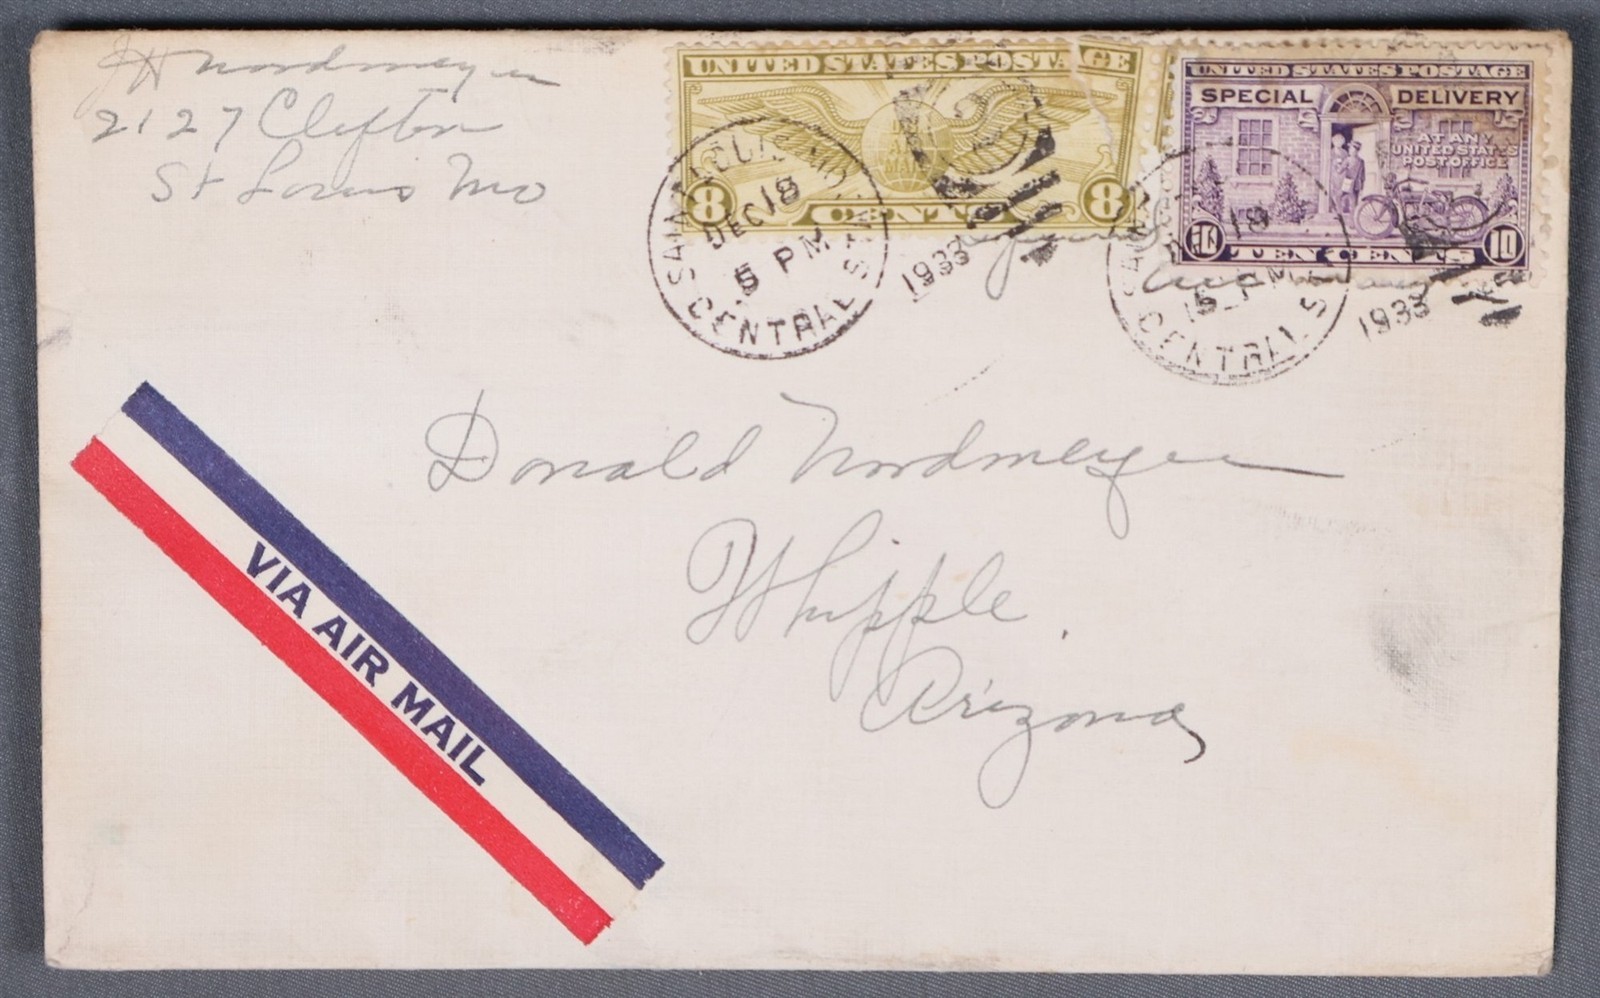 JH Nordmeyer
2127 Clifton
St Louis Mo
UNITED STATES POSTAGE
AIR MAIL
8 CENTS 8
UNITED STATES POSTAGE
SPECIAL DELIVERY
AT ANY
UNITED STATES
POST OFFICE
10 TEN CENTS 10
SAINT LOUIS, MO.
DEC 18
5 PM
1933
CENTRAL STA.
18
5 PM
1933
CENTRAL S
Donald Nordmeyer
Whipple.
Arizona
VIA AIR MAIL